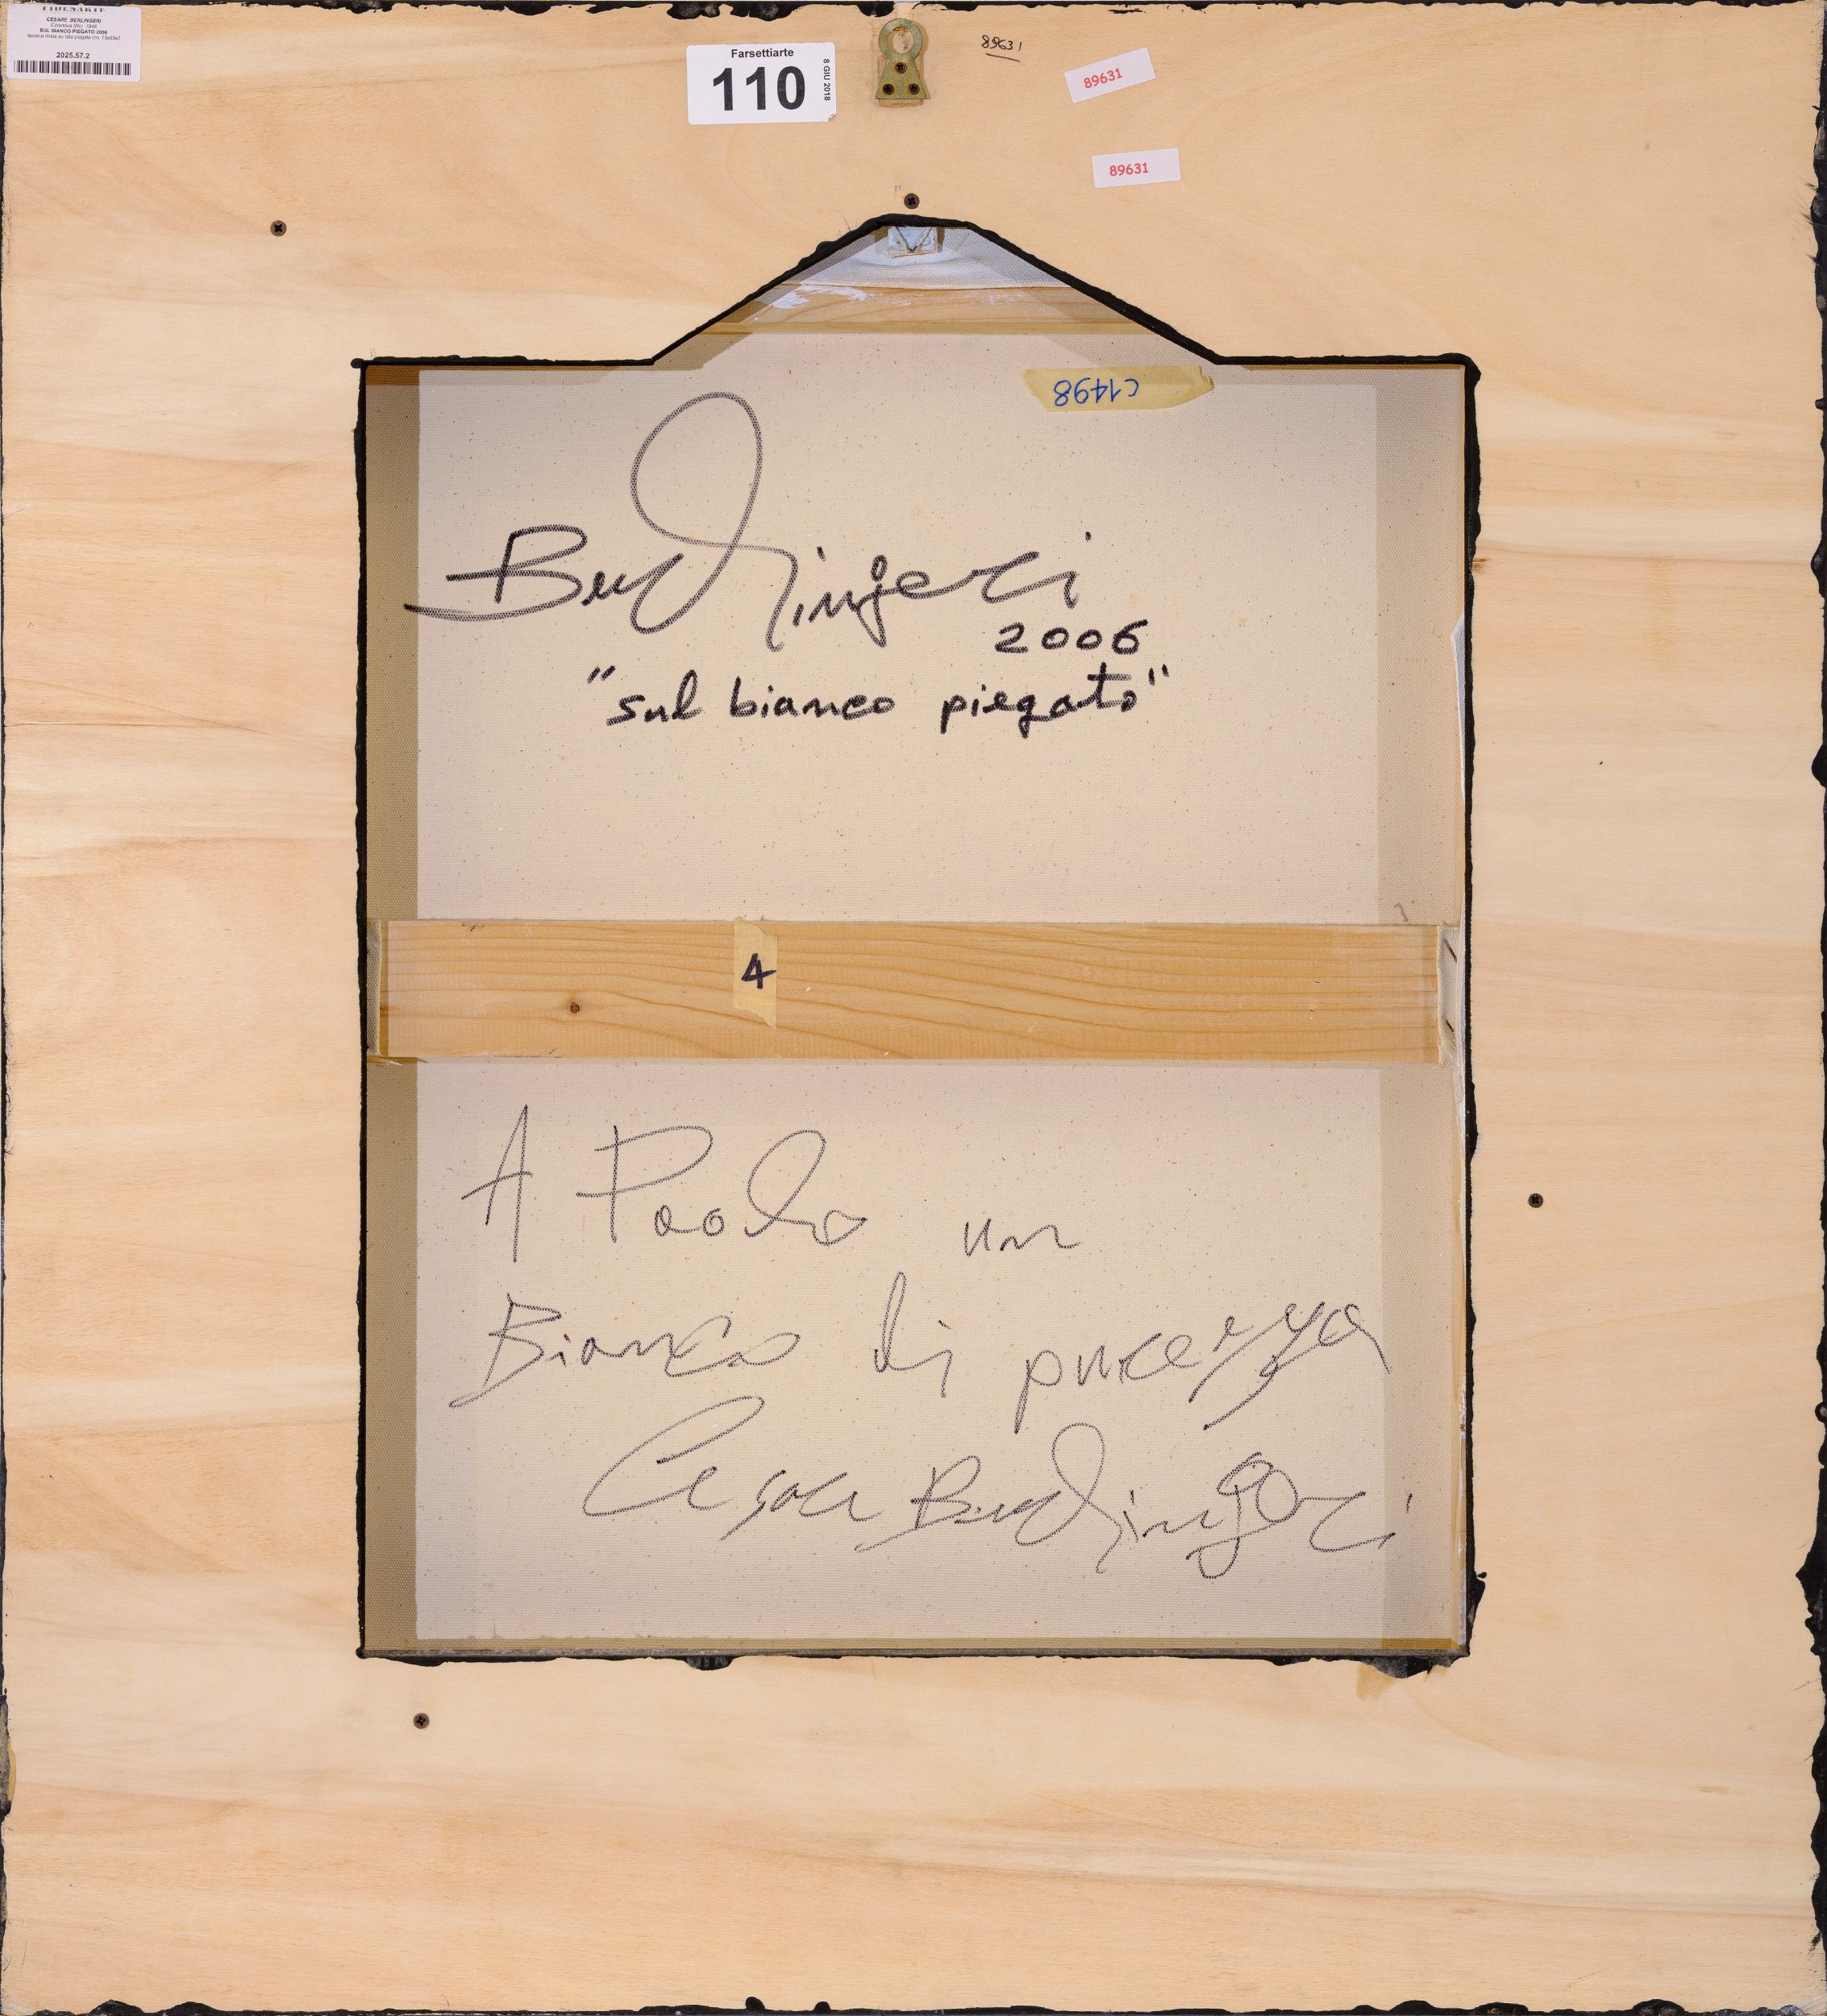 FIDESARTE
CESARE BERLINGERI
Cittanova (Rc) 1948
SUL BIANCO PIEGATO 2006
tecnica mista su tela piegata cm. 73x63x7
2025.57.2
Farsettiarte
110
8 GIU 2018
89631
89631
89631
c1498
Berlingeri
2006
"sul bianco piegato"
4
A Paolo un
Bianco di purezza
Cesare Berlingeri